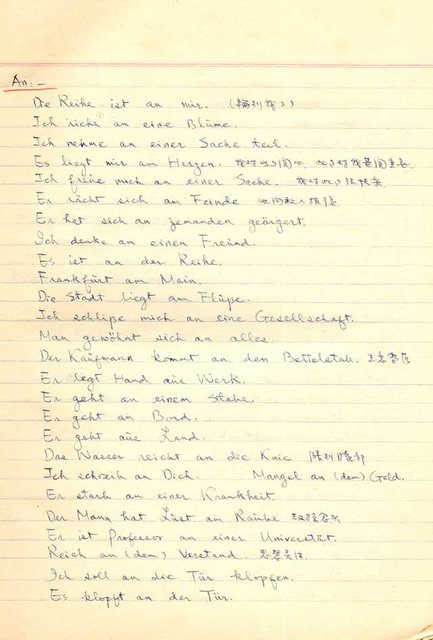 An:-
Die Reihe ist an mir. (輪到我了)
Ich rieche an eine Blume.
Ich nehme an einer Sache teil.
Es liegt mir am Herzen.
Ich freue mich an einer Sache.
Er rächt sich am Feinde
Er hat sich an jemanden geärgert.
Ich denke an einen Freund.
Es ist an der Reihe.
Frankfurt am Main.
Die Stadt liegt am Fluße.
Ich schließe mich an eine Gesellschaft.
Man gewöhnt sich an alles.
Der Kaufmann kommt an den Bettelstab.
Er legt Hand ans Werk.
Er geht an einem Stabe.
Er geht an Bord.
Er geht ans Land.
Das Wasser reicht an die Knie
Ich schreib an Dich. Mangel an (dem) Geld.
Er starb an einer Krankheit.
Der Mann hat Lust am Raube
Er ist Professor an einer Universität.
Reich an (dem) Verstand.
Ich soll an die Tür klopfen.
Es klopft an der Tür.